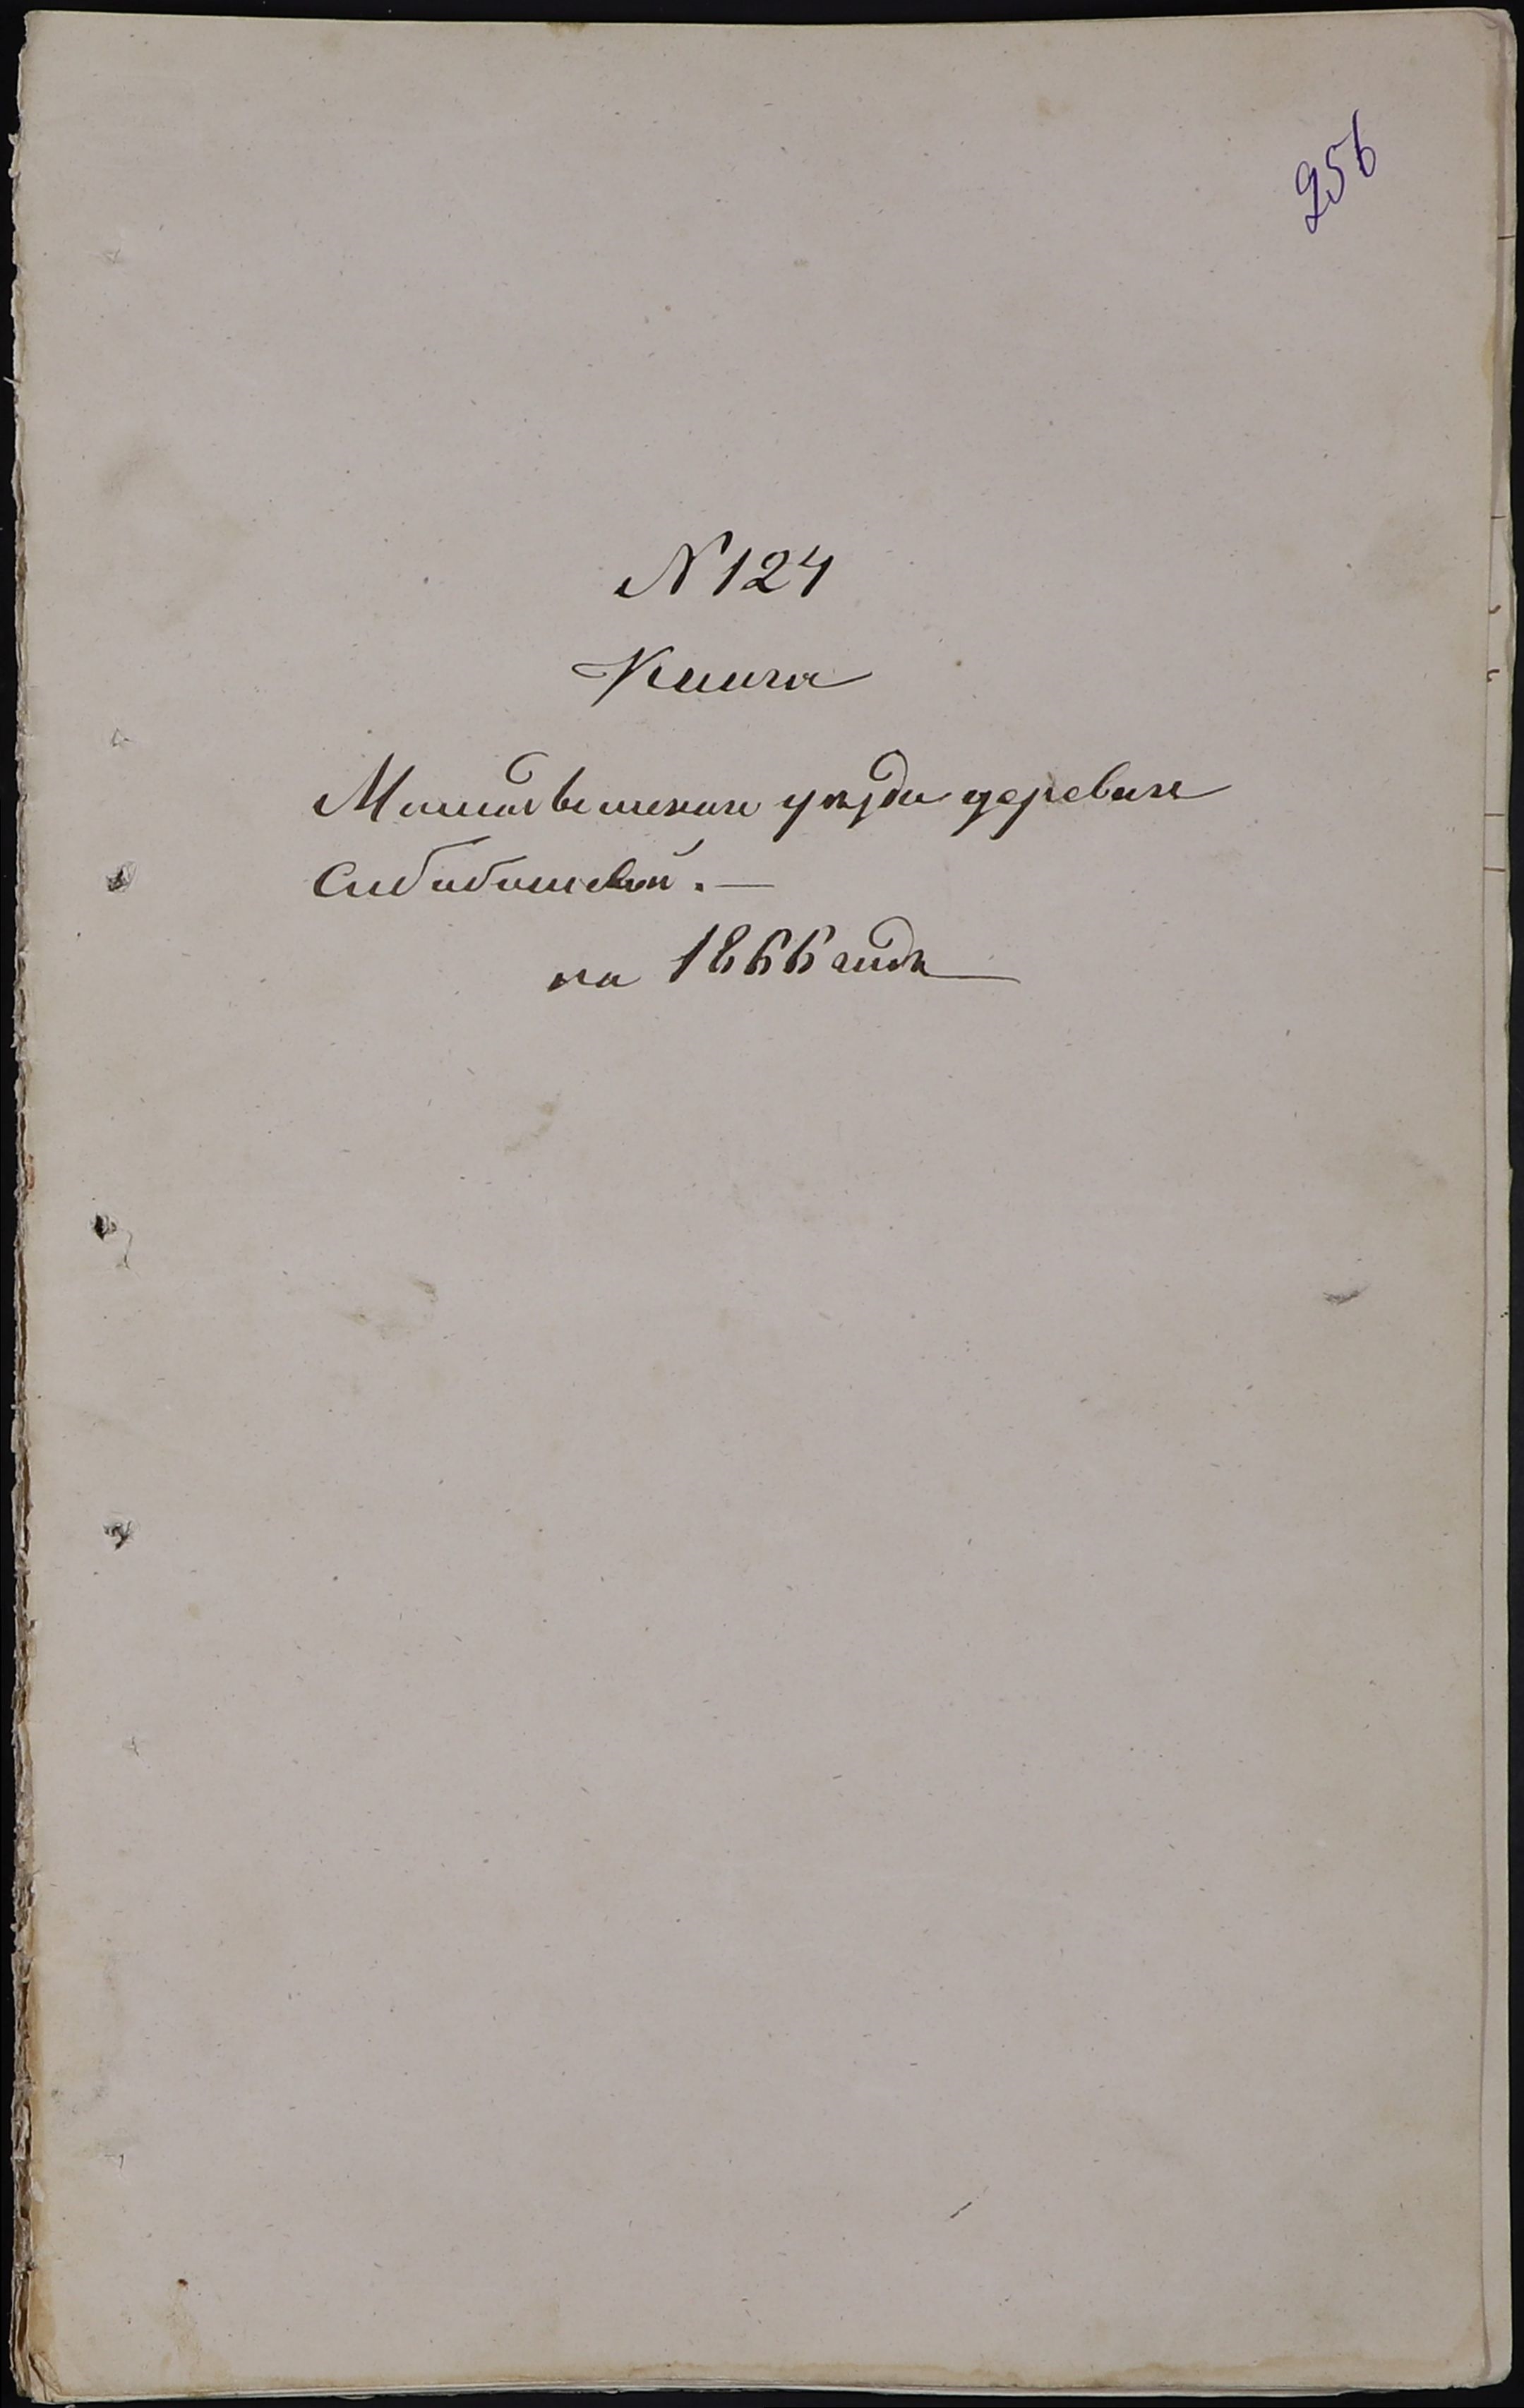 256
N 124
Книга
Мамадышскаго уѣзда деревни
на 1866 годъ